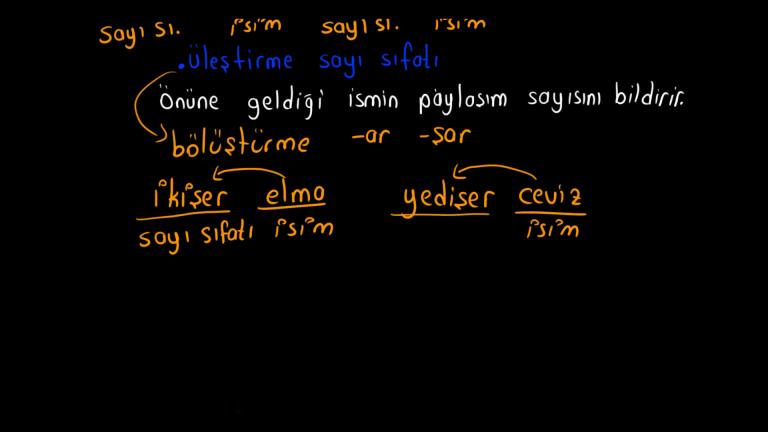 sayı sı. isim sayı sı. isim
• üleştirme sayı sıfatı
Önüne geldiği ismin paylaşım sayısını bildirir.
bölüştürme -ar -şar
ikişer elma yedişer ceviz
sayı sıfatı isim isim